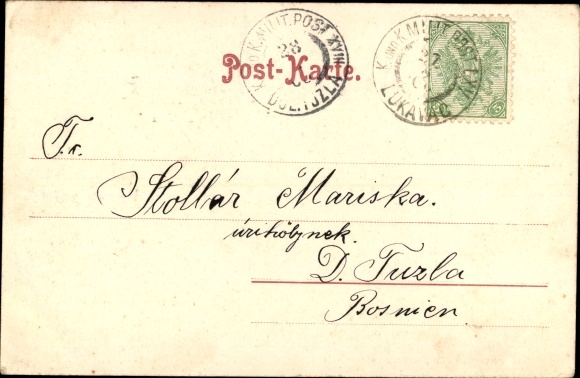 K. UND K. MILIT. POST XVIII
28
DOL. TUZLA
K. UND K. MILIT. POST LXVI
LUKAVAC
5
Post-Karte.
T. c.
Stollár Mariska.
úrihölynek.
D. Tuzla
Bosnien